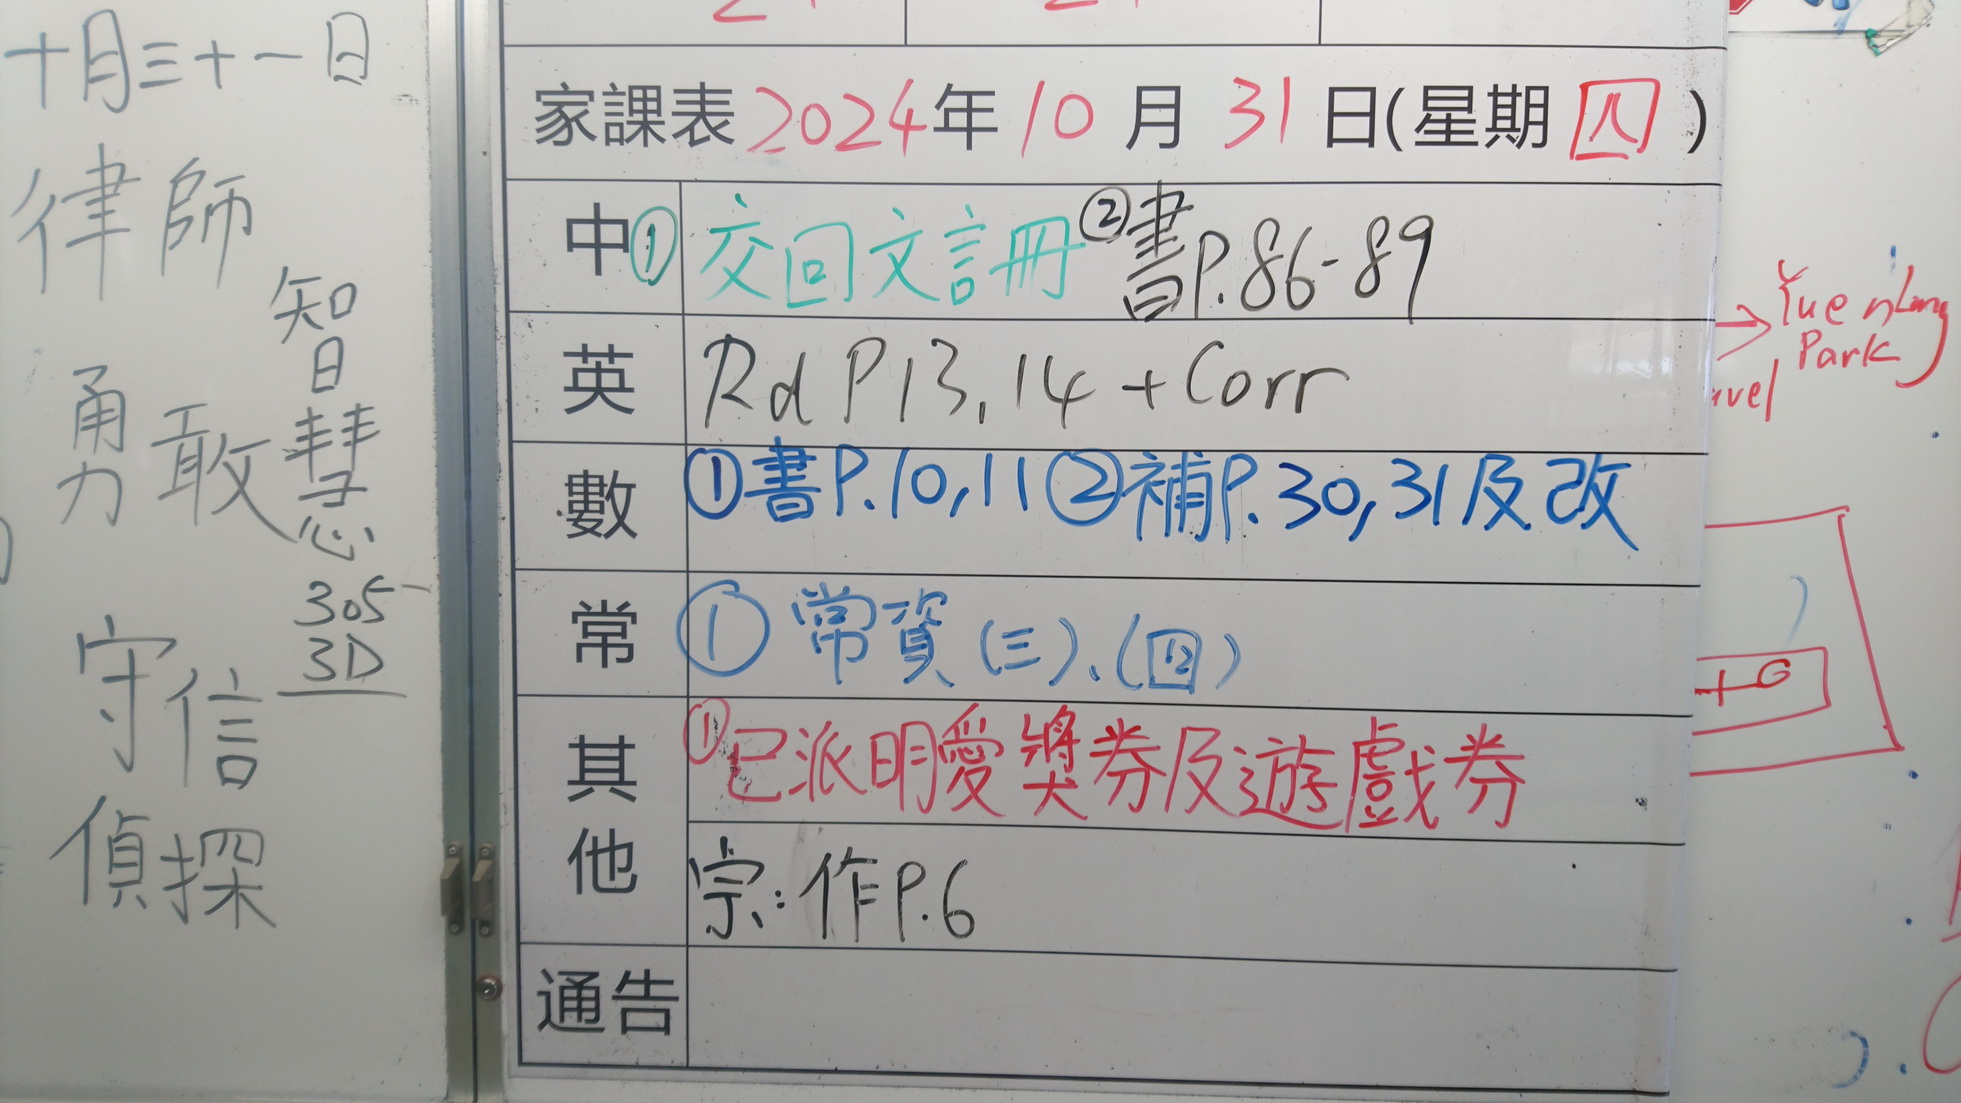 十月三十一日
律師
智慧
勇敢
305
3D
守信
偵探
家課表 2024年 10 月 31 日(星期 四 )
中 ① 交回文言冊 ② 書P.86-89
英 Rd P13,14 + Corr
數 ①書P.10,11 ②補P.30,31及改
常 ① 常資(三)、(四)
其他 ①已派明愛獎券及遊戲券
宗:作P.6
通告
Yuen Long
Park